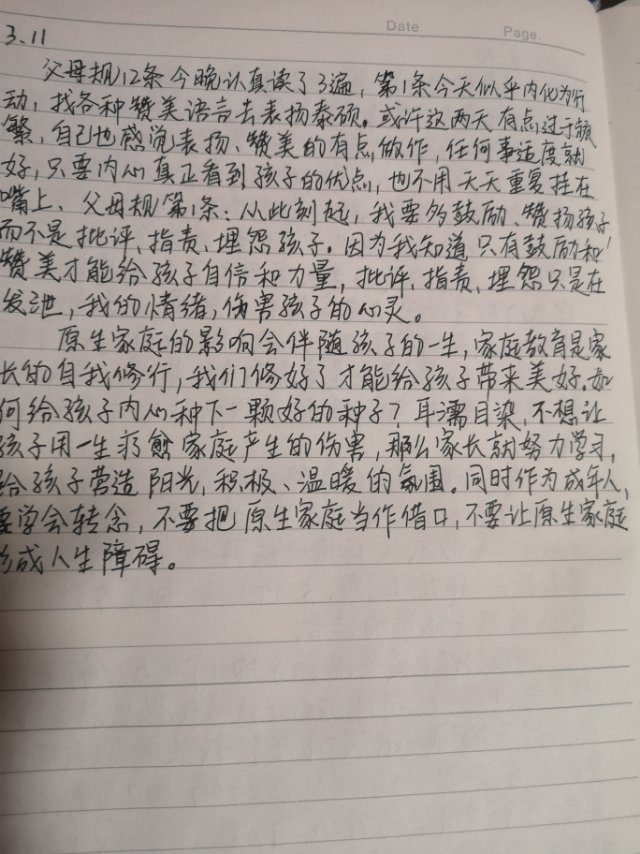 Date
Page
3.11
父母规12条今晚认真读了3遍,第1条今天似乎内化为行
动,找各种赞美语言去表扬泰硕。或许这两天有点过于频
繁,自己也感觉表扬、赞美的有点做作,任何事适度就
好,只要内心真正看到孩子的优点,也不用天天重复挂在
嘴上、父母规第1条:从此刻起,我要多鼓励、赞扬孩子
而不是批评、指责、埋怨孩子。因为我知道只有鼓励和
赞美才能给孩子自信和力量,批评、指责、埋怨只是在
发泄,我的情绪,伤害孩子的心灵。
原生家庭的影响会伴随孩子的一生,家庭教育是家
长的自我修行,我们修好了才能给孩子带来美好。如
何给孩子内心种下一颗好的种子?耳濡目染,不想让
孩子用一生疗愈家庭产生的伤害,那么家长就努力学习,
给孩子营造阳光,积极、温暖的氛围。同时作为成年人,
要学会转念,不要把原生家庭当作借口,不要让原生家庭
形成人生障碍。